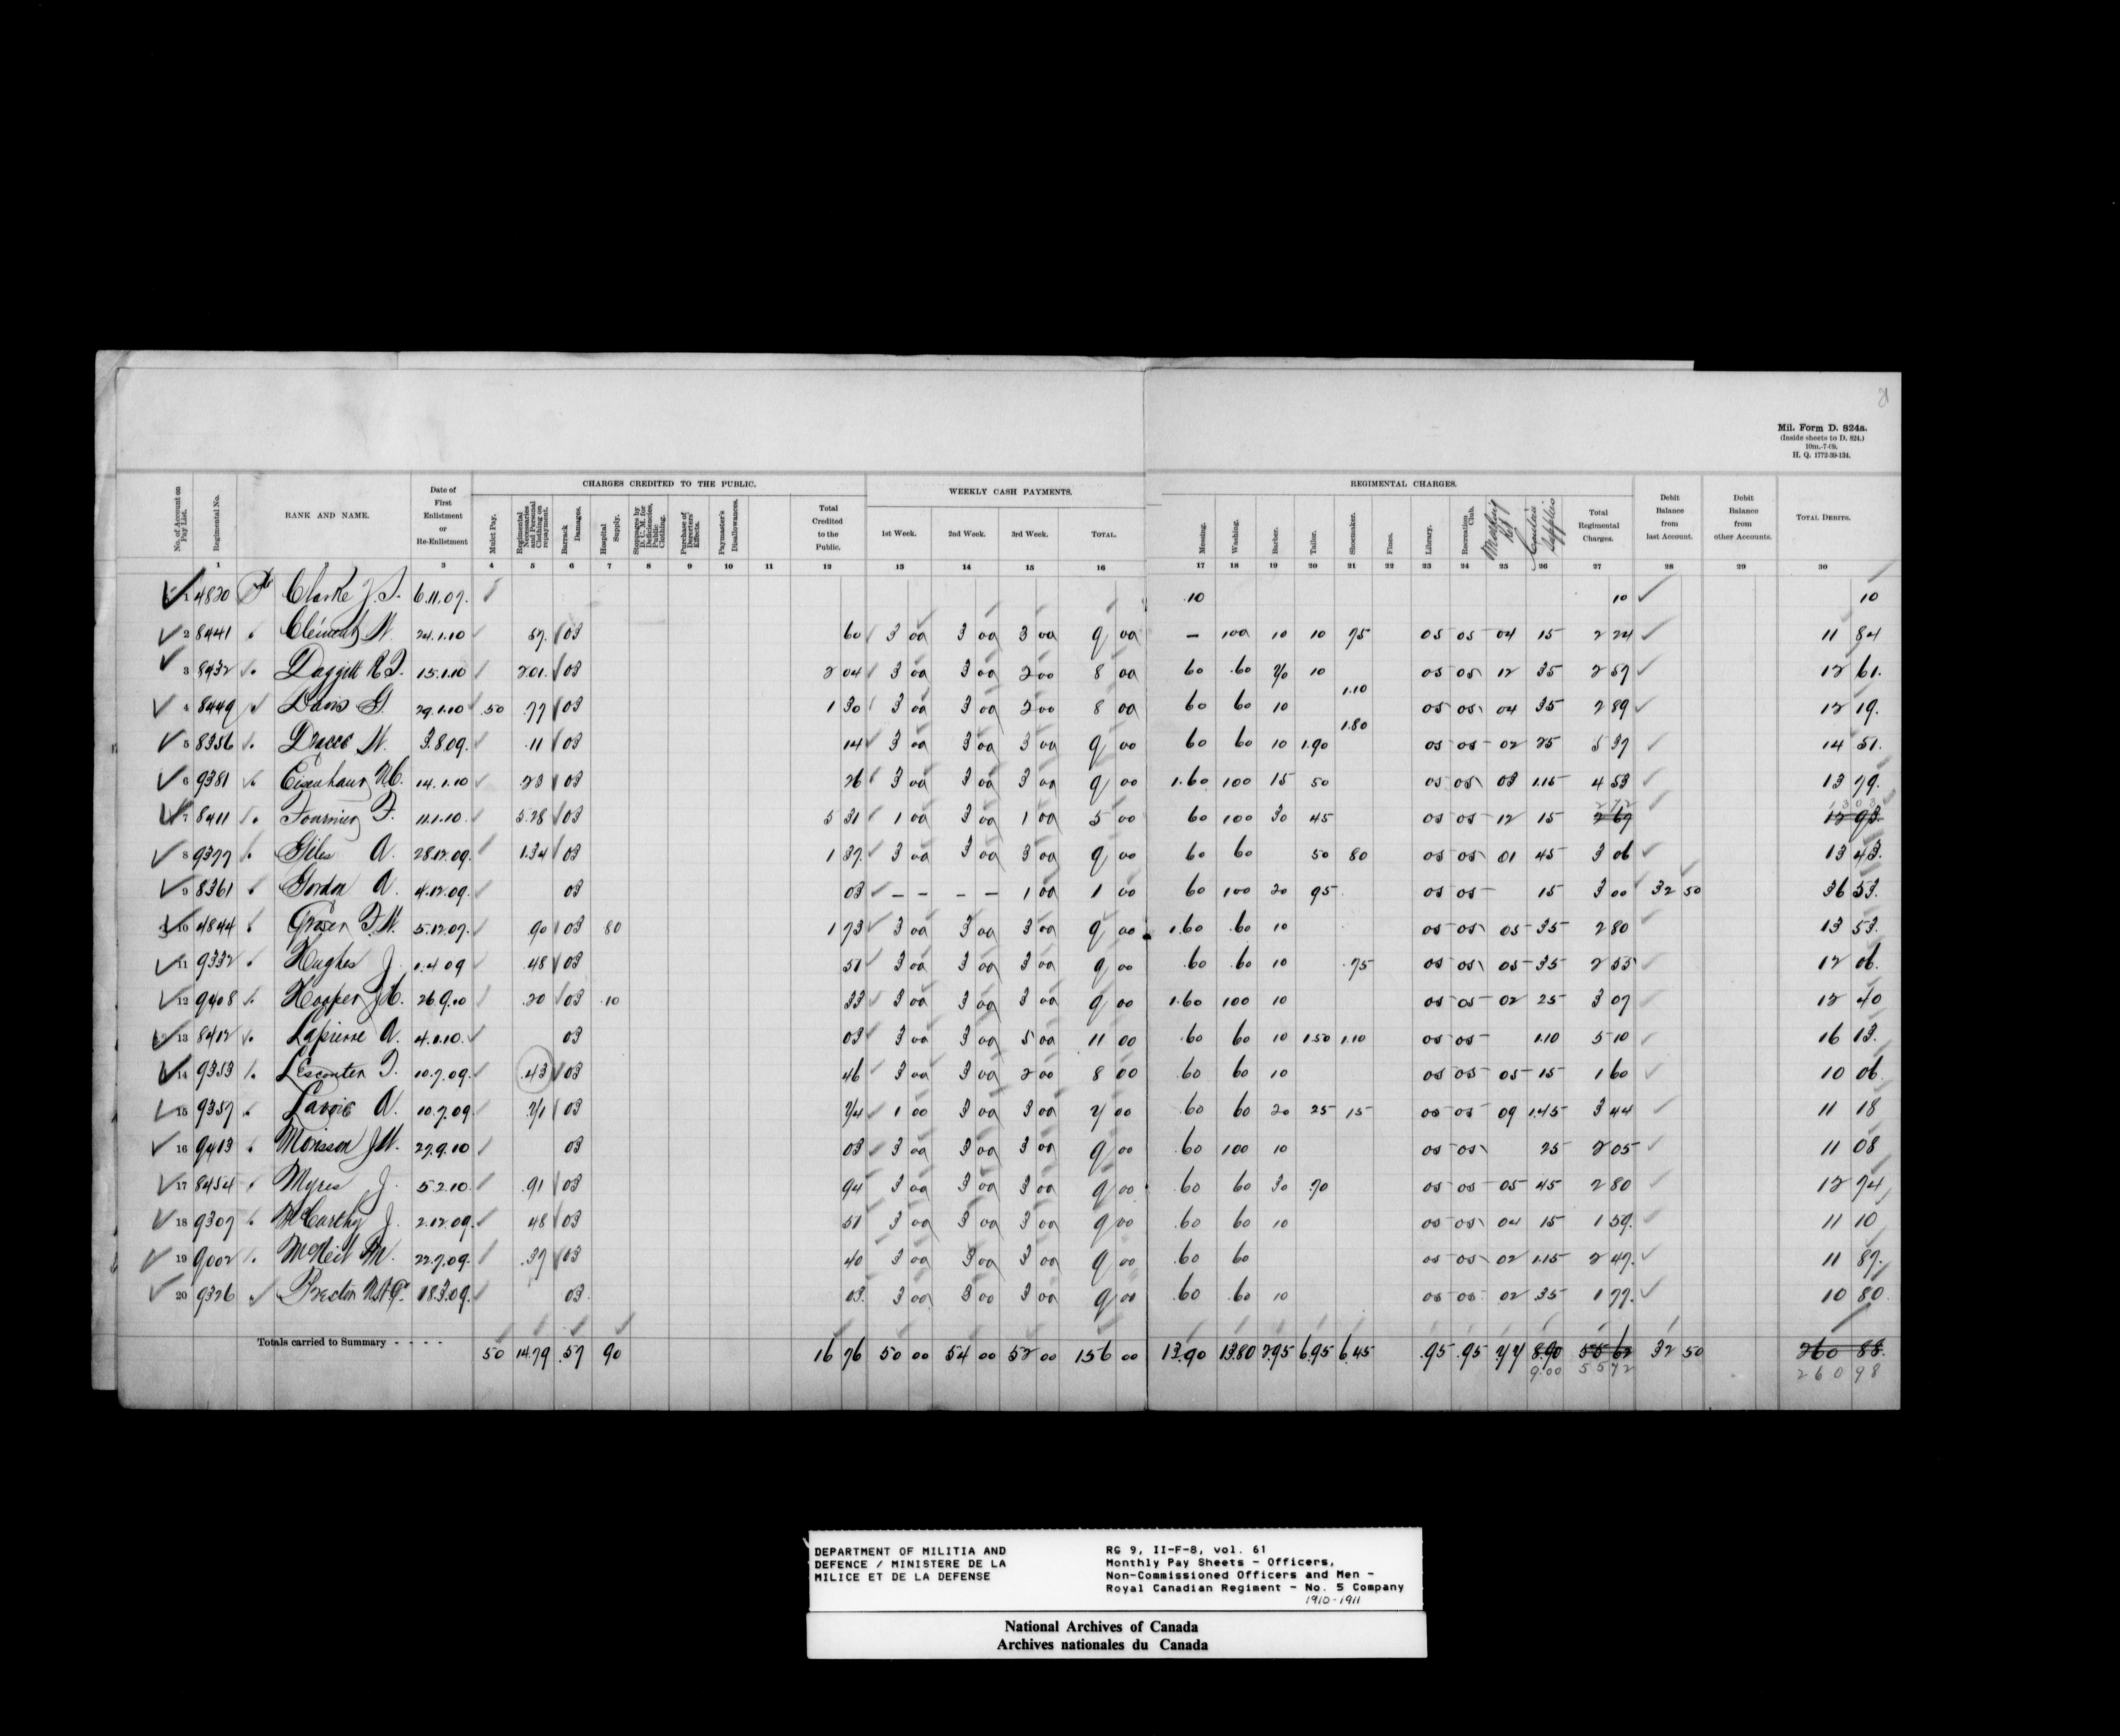 21
Mil. Form D. 824a.
(Inside sheets to D. 824.)
10m.-7-09.
H. Q. 1772-39-134.
CHARGES CREDITED TO THE PUBLIC. WEEKLY CASH PAYMENTS. REGIMENTAL CHARGES.
No. of Account on Pay List. Regimental No. RANK AND NAME. Date of First Enlistment or Re-Enlistment Mulct Pay. Regimental Necessaries and Personal Clothing on repayment. Barrack Damages. Hospital Supply. Stoppages by D. C. M. for Deficiencies, Public Clothing. Purchase of Deserters' Effects. Paymaster's Disallowances. Total Credited to the Public. 1st Week. 2nd Week. 3rd Week. TOTAL. Messing. Washing. Barber. Tailor. Shoemaker. Fines. Library. Recreation Club. Marking Kit Canteen Supplies Total Regimental Charges. Debit Balance from last Account. Debit Balance from other Accounts. TOTAL DEBITS.
1 2 3 4 5 6 7 8 9 10 11 12 13 14 15 16 17 18 19 20 21 22 23 24 25 26 27 28 29 30
1 4820 Pte Clarke J.S. 6.11.07. .10 10 10
2 8441 Clement W. 24.1.10 57. 03 60 3 00 3 00 3 00 9 00 — 100 10 10 75 05 05 04 15 2 24 11 84
3 8932 Daggett R.F. 15.1.10 2.01. 03 2 04 3 00 3 00 2 00 8 00 60 .60 70 10 05 05 12 35 2 57 12 61.
4 8449 Davis G. 29.1.10 .50 .77 03 1 30 3 00 3 00 2 00 8 00 60 60 10 1.10 05 05 04 35 2 89 12 19.
5 8356 W. 3.8.09. .11 03 14 3 00 3 00 3 00 9 00 60 60 10 1.90 1.80 05 05 02 25 5 37 14 51.
6 9381 Eisenhaur 14.1.10 .23 03 26 3 00 3 00 3 00 9 00 1.60 100 15 50 05 05 03 1.15 4 53 13 79.
7 8411 Fournier F. 11.1.10. 5.28 03 5 31 1 00 3 00 1 00 5 00 60 100 30 45 05 05 12 15 2 67 2 72 12 93. 13 03
8 9377 Giles A. 28.12.09. 1.34 03 1 37. 3 00 3 00 3 00 9 00 60 60 50 80 05 05 01 45 3 06 13 43.
9 8361 Gordon A. 4.12.09. 03 03 – – – – 1 00 1 00 60 100 20 95 05 05 15 3 00 32 50 36 53.
10 4844 Graser F.W. 5.12.07. .90 03 80 1 73 3 00 3 00 3 00 9 00 1.60 .60 10 05 05 05 35 2 80 13 53.
11 9332 Hughes J. 1.4.09 .48 03 51 3 00 3 00 3 00 9 00 .60 .60 10 .75 05 05 05 35 2 55 12 06.
12 9408 Hooper J.C. 26.9.10 .20 03 .10 33 3 00 3 00 3 00 9 00 1.60 100 10 05 05 02 25 3 07 12 40
13 8412 Lapierre A. 4.1.10. 03 03 3 00 3 00 5 00 11 00 .60 60 10 1.50 1.10 05 05 1.10 5 10 16 13.
14 9353 LEscouter F. 10.7.09. .43 03 46 3 00 3 00 2 00 8 00 .60 60 10 05 05 05 15 1 60 10 06.
15 9357 Lavoie A. 10.7.09 71 03 74 1 00 3 00 3 00 7 00 .60 60 20 25 15 05 05 09 1.45 3 44 11 18
16 9413 Morisson J.W. 27.9.10 03 03 3 00 3 00 3 00 9 00 .60 100 10 05 05 25 2 05 11 08
17 8454 Myres J. 5.2.10. .91 03 94 3 00 3 00 3 00 9 00 .60 60 30 .70 05 05 05 45 2 80 12 74
18 9307 McCarthy J. 2.12.09. 48 03 51 3 00 3 00 3 00 9 00 .60 60 10 05 05 04 15 1 59. 11 10
19 9002 McNeil M. 22.7.09. .37 03 40 3 00 3 00 3 00 9 00 .60 60 05 05 02 1.15 2 47. 11 87.
20 9326 Preston 18.3.09. 03. 03. 3 00 3 00 3 00 9 00 .60 .60 10 05 05 02 35 1 77. 10 80
Totals carried to Summary - - - - 50 14.79 .57 90 16 76 50 00 54 00 52 00 156 00 13.90 13.80 2.95 6.95 6.45 .95 .95 .77 8.90 55 62 32 50 260 88.
9.00 55 72 260 98
DEPARTMENT OF MILITIA AND
DEFENCE / MINISTERE DE LA
MILICE ET DE LA DEFENSE
RG 9, II-F-8, vol. 61
Monthly Pay Sheets - Officers,
Non-Commissioned Officers and Men -
Royal Canadian Regiment - No. 5 Company
1910-1911
National Archives of Canada
Archives nationales du Canada